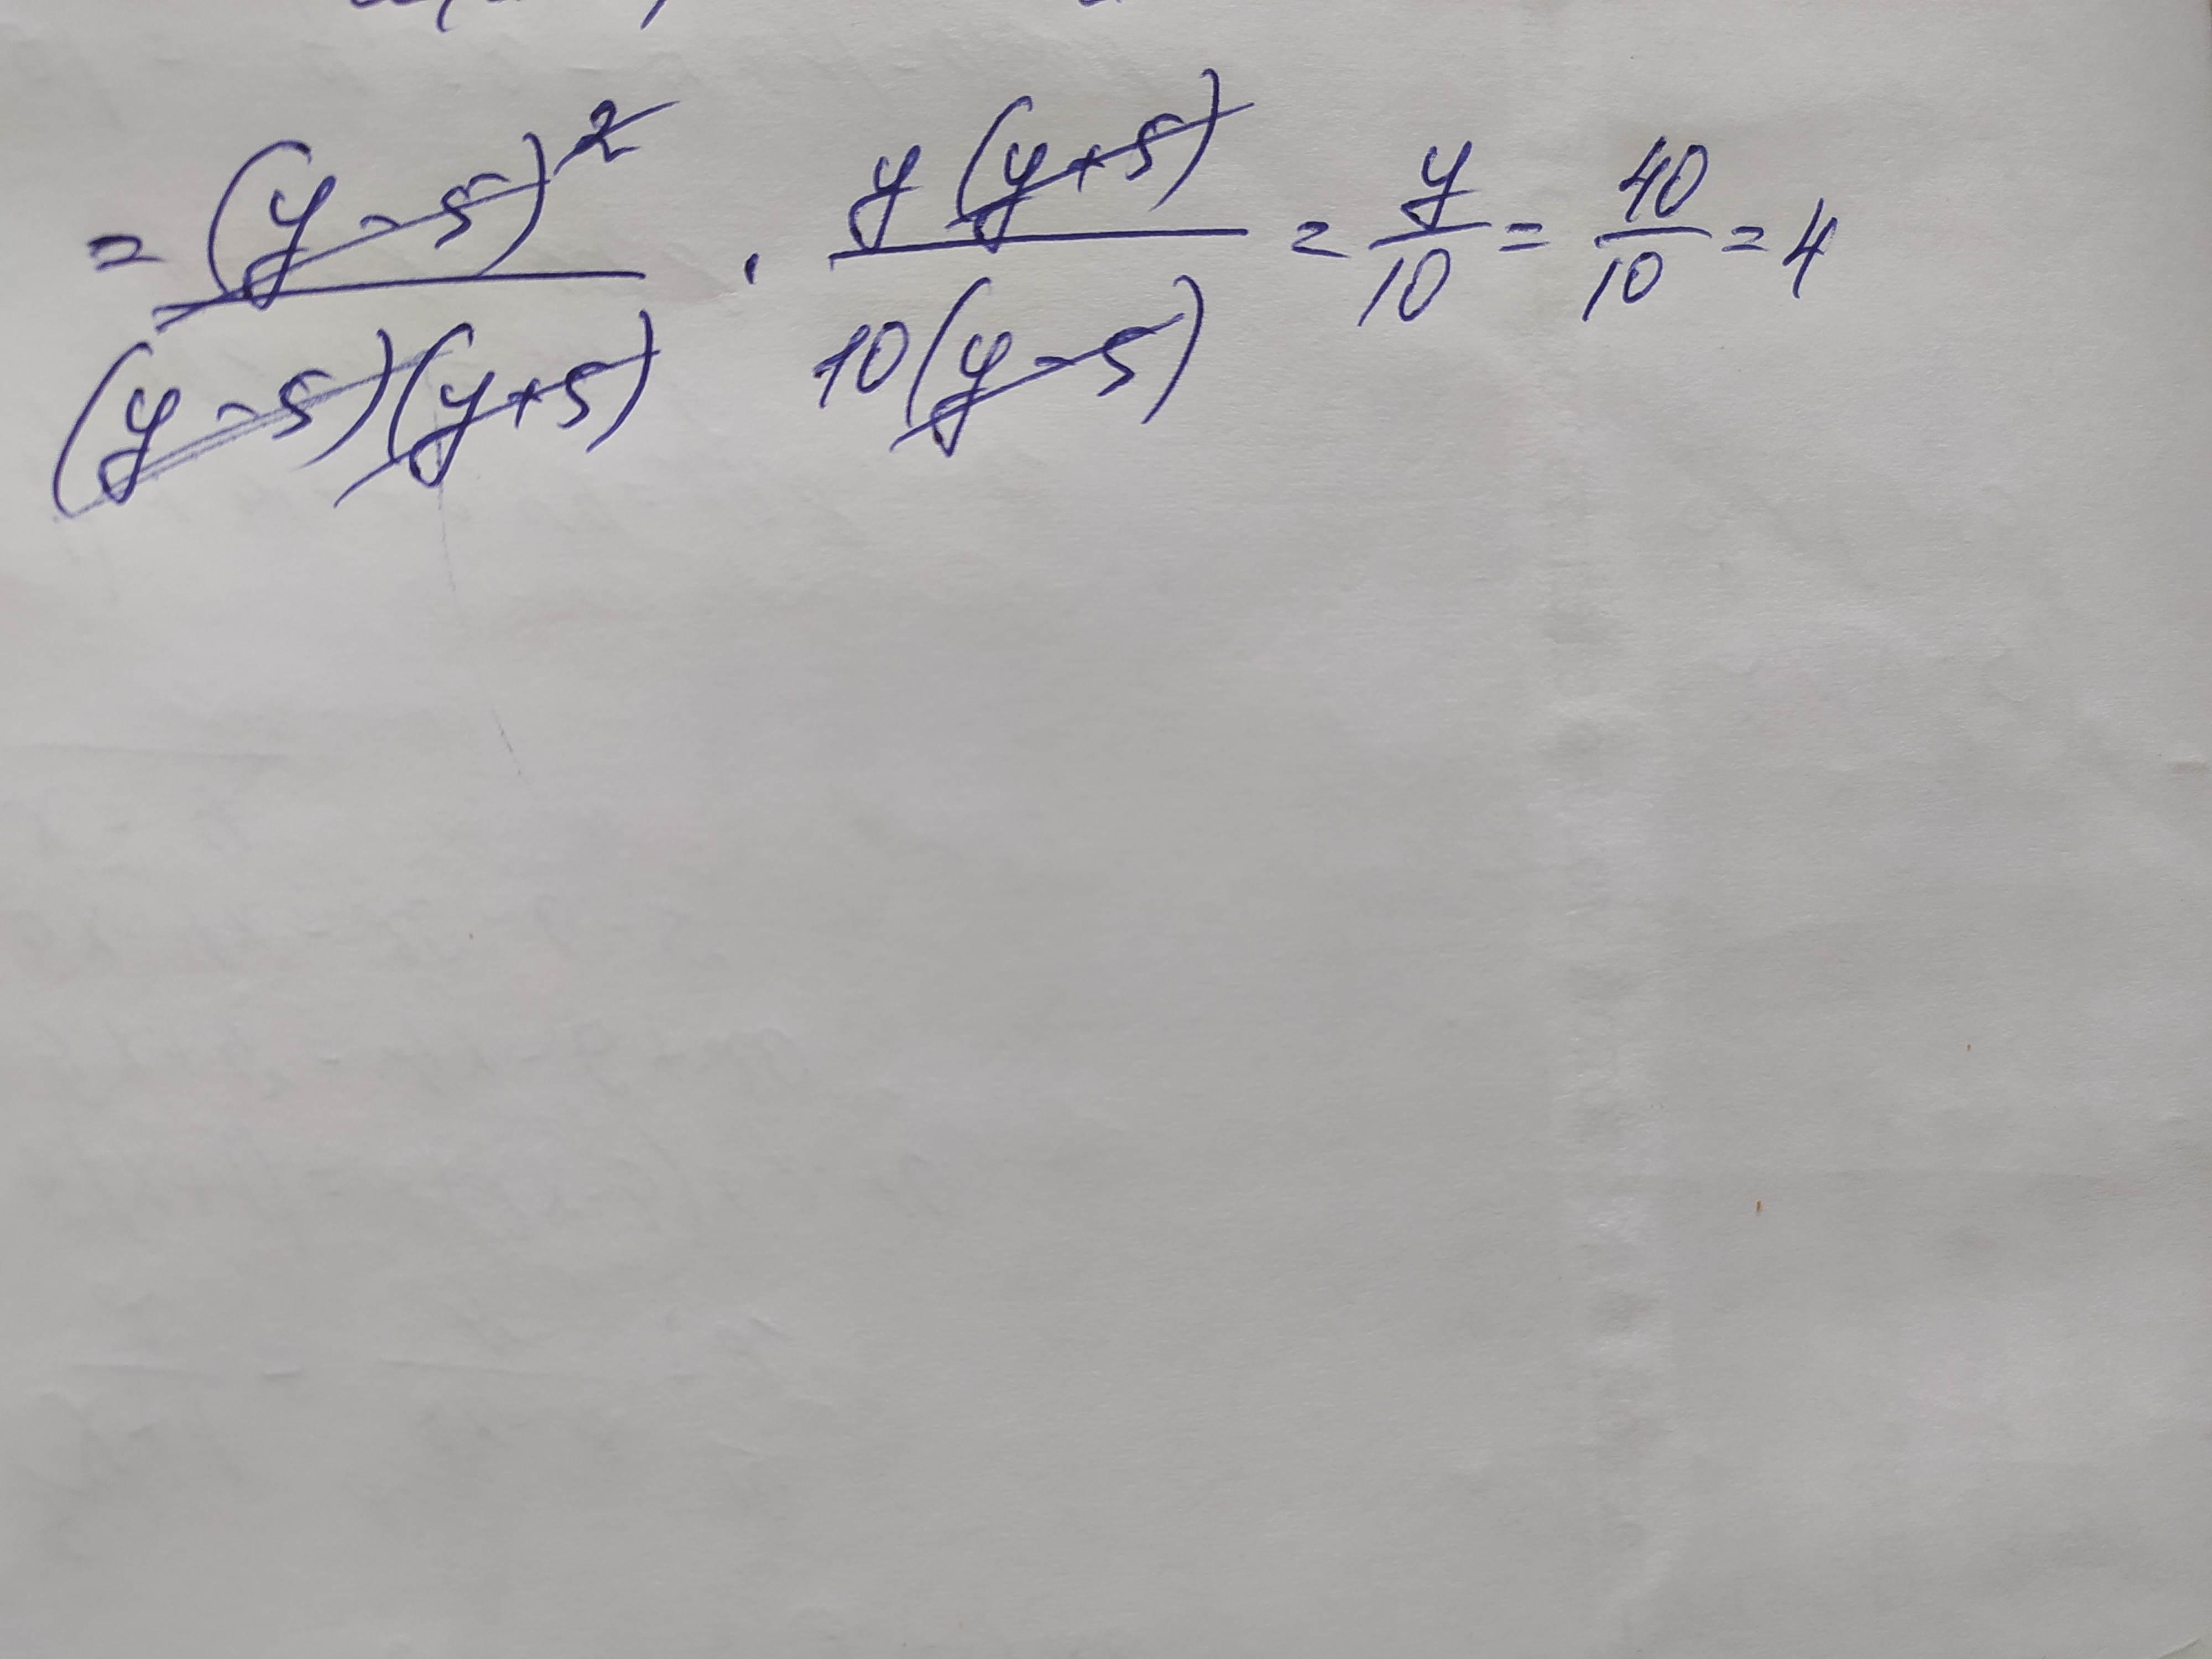 = (y-5)² / (y-5)(y+5) · y(y+5) / 10(y-5) = y/10 = 40/10 = 4